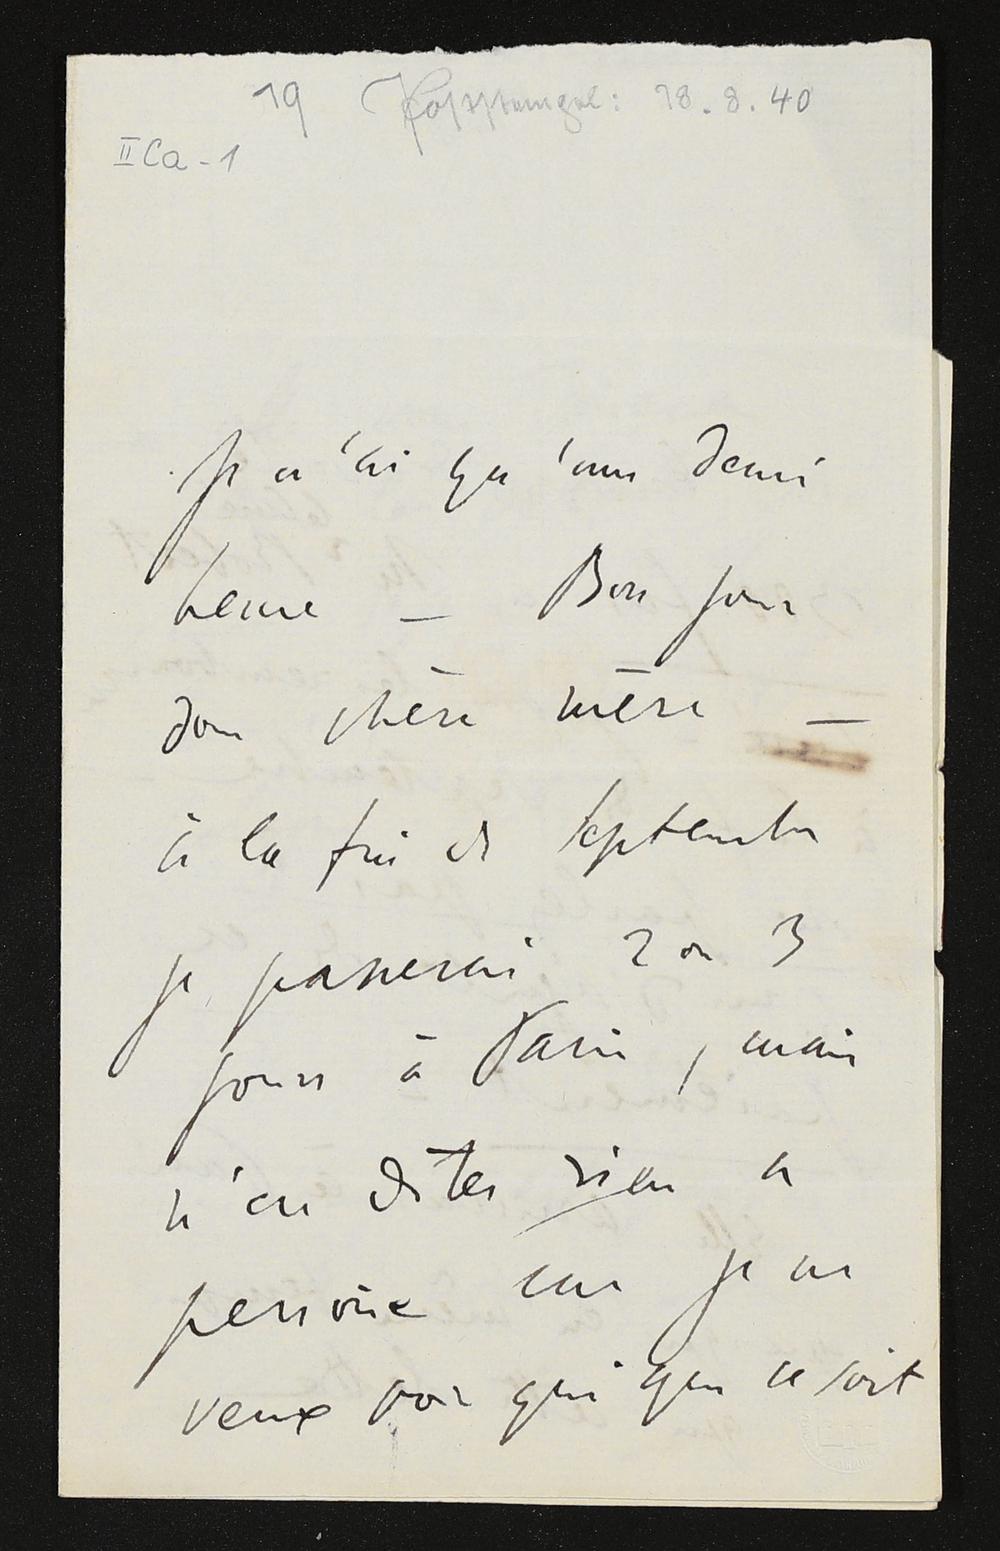 19 Poststempel: 18.8.40
II Ca - 1
Je n'ai qu'une demi
heure — Bon jour
donc chère mère —
à la fin de Septembre
je passerai 2 ou 3
jours à Paris, mais
n'en dites rien a
personne car je ne
veux voir qui que ce soit